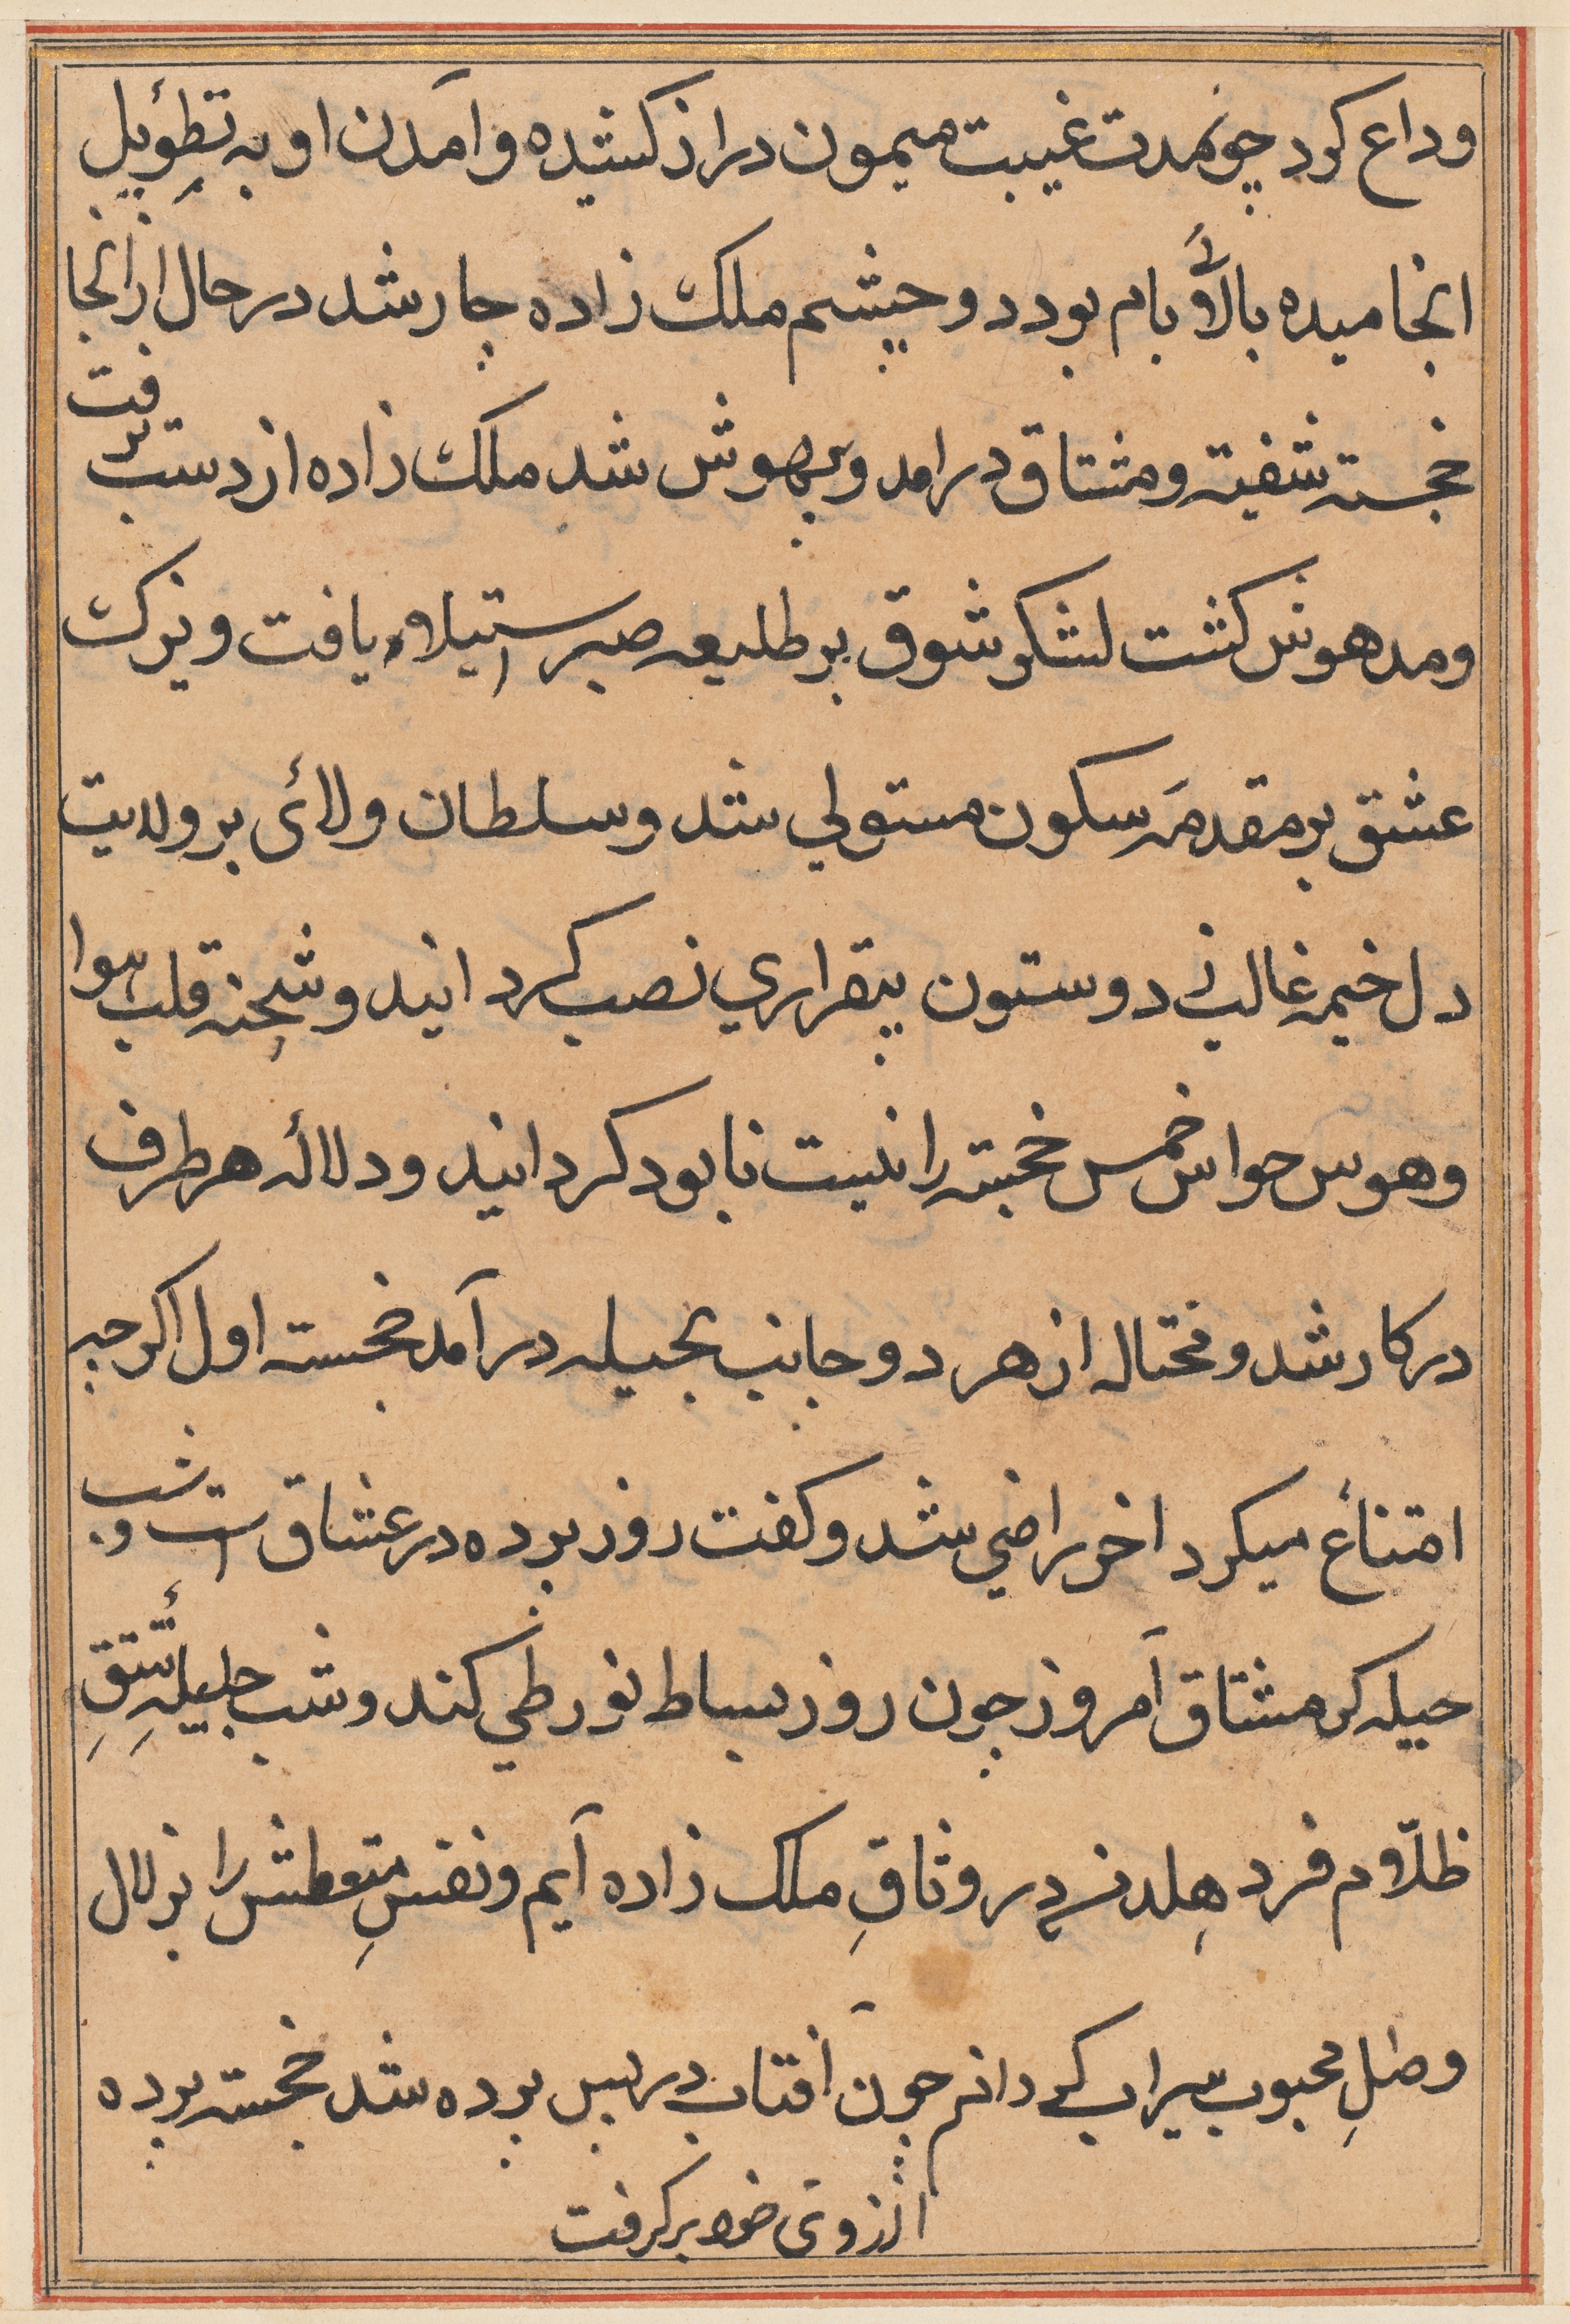 وداع کرد چونمدت غیبت میمون دراز کشیده و آمدن او به تطؤیل
انجامیده بالآء بام بود دو چشم ملک زاده چار شد در حال از انجا
خجسته شفیته و مشتاق درامد و بیهوش شد ملک زاده از دست برفت
و مدهوش کشت لشکر شوق بر طلیعه صبر استیلاء یافت و یزک
عشق بر مقدمه سکون مستولی شد و سلطان ولائ بر ولایت
دل خیمه غالب ز دوستون بیقراری نصب کردانید و شحنه قلب هوا
و هوس حواس خمس خجسته را نیست نابود کردانید و دلاله هر طرف
در کار شد و محتاله از هر دو جانب بحیله در آمد خجسته اول اکر چه
امتناع میکرد اخر راضی شد و کفت روز برده در عشاق است و شب
حیله کر مشتاق آمروز چون روز بساط نور طی کند و شب جلیله تتق
ظلام فرد هلد در وثاق ملک زاده آیم و نفس متعطش را بزلال
وصل محبوب سیراب کردانم چون آفتاب در پس برده شد خجسته برده
از روی خود برکرفت